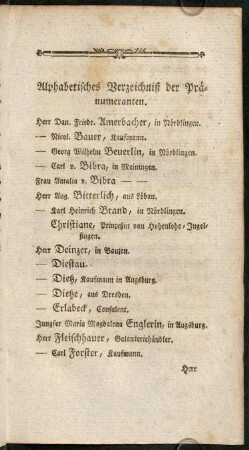 Alphabetisches Verzeichniß der Prä-
numeranten.
Herr Dan. Friedr. Amerbacher, in Nördlingen.
— Nicol. Bauer, Kaufmann.
— Georg Wilhelm Beuerlin, in Nördlingen.
— Carl v. Bibra, in Meiningen.
Frau Amalia v. Bibra — —
Herr Aug. Bitterlich, aus Löbau.
— Karl Heinrich Brand, in Nördlingen.
— Christiane, Prinzeßin von Hohenlohe-Ingel-
fingen.
Herr Deinzer, in Bautzen.
— Diestau.
— Dietz, Kaufmann in Augsburg.
— Dietze, aus Dresden.
— Erlabeck, Consulent.
Jungfer Maria Magdalena Englerin, in Augsburg.
Herr Fleischhauer, Galanteriehändler.
— Carl Forster, Kaufmann.
Herr